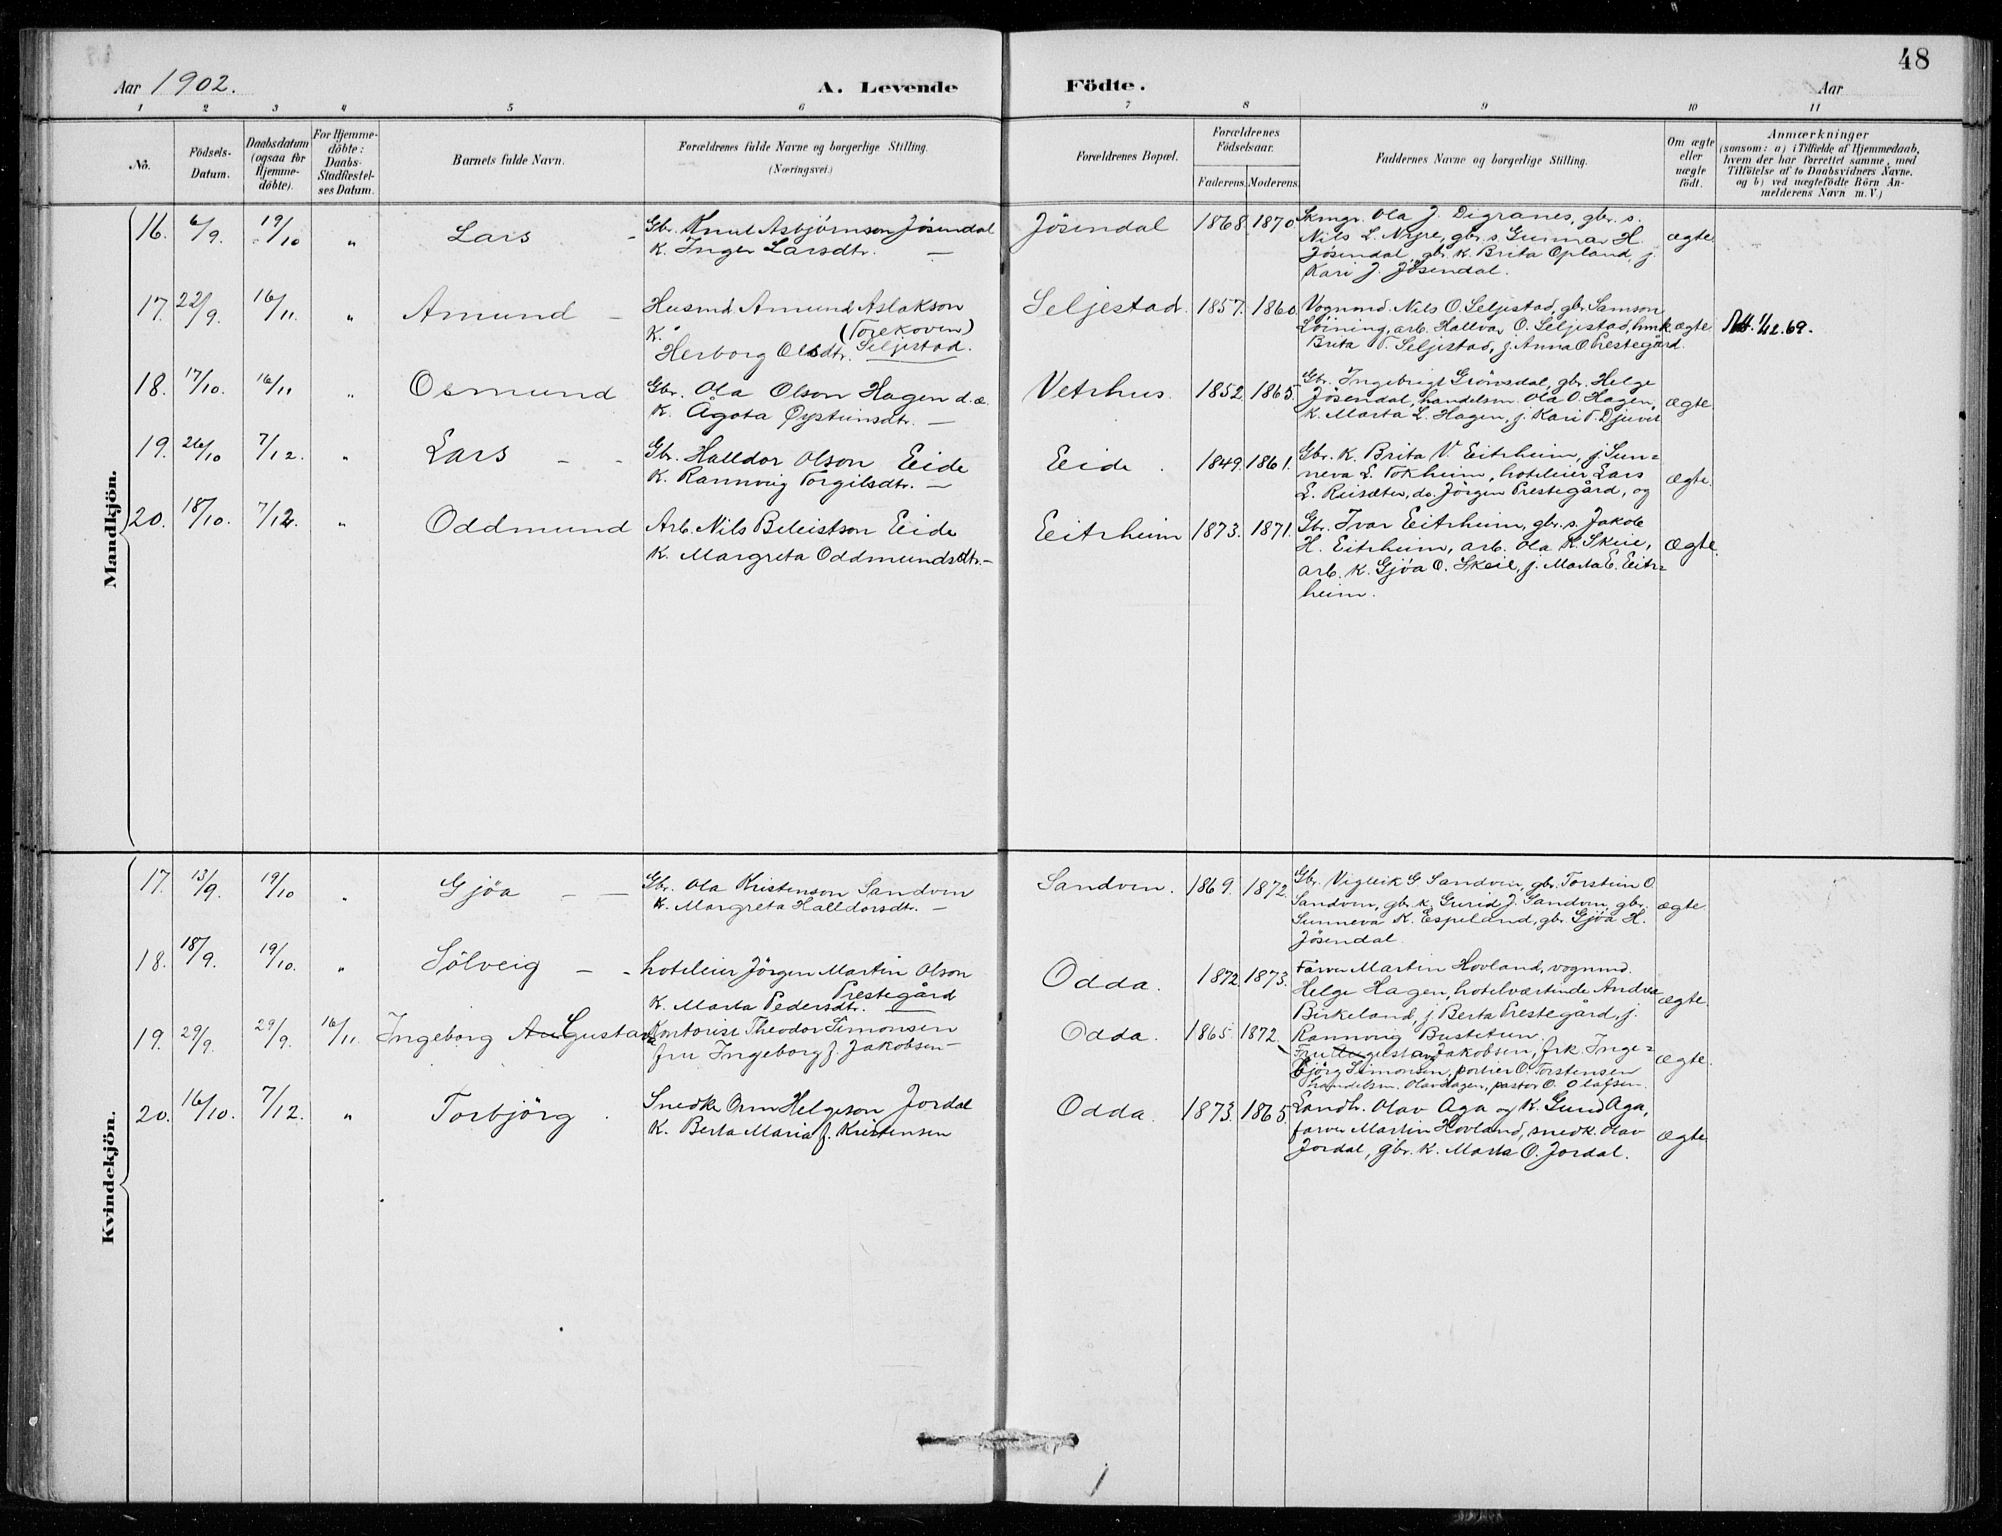 48
Aar 1902.
A. Levende Födte.
Aar
1 2 3 4 5 6 7 8 9 10 11
No.
Födsels-Datum.
Daabsdatum (ogsaa for Hjemme-döbte).
For Hjemme-döbte: Daabs-Stadfæstel-ses Datum.
Barnets fulde Navn.
Forældrenes fulde Navne og borgerlige Stilling.
(Næringsvei.)
Forældrenes Bopæl.
Forældrenes Födselsaar.
Faderens. Moderens.
Faddernes Navne og borgerlige Stilling.
Om ægte eller uægte födt.
Anmærkninger
(saasom: a) i Tilfælde af Hjemmedaab,
hvem der har forrettet samme, med
Tilföielse af to Daabsvidners Navne.
og b) ved uægtefödte Börn An-
melderens Navn m. V.)
Mandkjön.
16. 6/9. 19/10 " Lars - Gbr. Knut Asbjörnson Jösendal Jösendal 1868. 1870. Skmgr. Ola J. Digranes, gbr. s.
K. Inger Larsdtr. — Nils L. Nyre, gbr. s. Gunnar H. ægte.
Jösendal, gbr. K. Brita Opland, j.
Kari J. Jösendal.
17. 22/9. 16/11. " Amund - Husmd. Amund Aslakson Seljestad. 1857. 1860. Vognmd. Nils O. Seljestad, gbr. Samson
K. (Torekoven) Löining, arb. Hallvar O. Seljestad, hmk. ægte
Herborg Olsdtr. Seljestad. Brita T. Seljestad, j. Anna O. Prestegård.
18. 17/10. 16/11 " Osmund Gbr. Ola Olson Hagen d.æ. Vetrhus. 1852. 1865. Gbr. Ingebrigt Grönsdal, gbr. Helge
K. Ågota Öysteinsdtr. — Jösendal, handelsm. Ola O. Hagen, ægte.
K. Marta L. Hagen, j. Kari T. Djuvik
19. 26/10 7/12. " Lars - - Gbr. Halldor Olson Eide Eide. 1849. 1861. Gbr. K. Brita V. Eitrheim, j. Sun=
K. Rannveig Torgilsdtr. — neva L. Tokheim, hoteleier Lars ægte.
L. Reisæter, do. Jörgen Prestegård, og
20. 18/10. 7/12. " Oddmund Arb. Nils Beleistson Eide Eitrheim 1873. 1871. Gbr. Ivar Eitrheim, gbr. s. Jakob
K. Margreta Oddmundsdtr. — H. Eitrheim, arb. Ola K. Skeie, ægte.
arb. K. Gjöa O. Skeie, j. Marta E. Eitr=
heim.
Kvindekjön.
17. 13/9. 19/10 " Gjöa - — Gbr. Ola Kristenson Sandven Sandven. 1869. 1872. Gbr. Vigleik G. Sandven, gbr. Torstein O.
K. Margreta Halldorsdtr. — Sandven, gbr. K. Gurid J. Sandven, gbr. ægte.
Sunneva K. Espeland, gbr. Gjöa H.
Jösendal.
18. 18/9. 19/10. " Sölveig - - hoteleier Jörgen Martin Olson Odda. 1872. 1873. Farver Martin Hovland, vognmd.
Prestegård Helge Hagen, hotelværtinde Andrea ægte.
K. Marta Pedersdtr. Birkeland, j. Berta Prestegård, j.
19. 29/9. 29/9. 16/11. Ingeborg Gustava Kontorist Theodor Simonsen Odda. 1865. 1872. Rannveig Bustetun.
fru Ingeborg f. Jakobsen — Fru Gustava Jakobsen, frk. Inge= ægte.
björg Simonsen, portier O. Torstensen
handelsm. Olav Hagen, pastor O. Olafsen.
20. 16/10. 7/12. " Torbjörg. Snedk. Orm Helgeson Jordal Odda. 1873. 1865. Landh. Olav Aga og K. Gurid Aga,
K. Berta Maria f. Kristensen farver Martin Hovland, snedk. Olav ægte
Jordal, gbr. K. Marta O. Jordal.